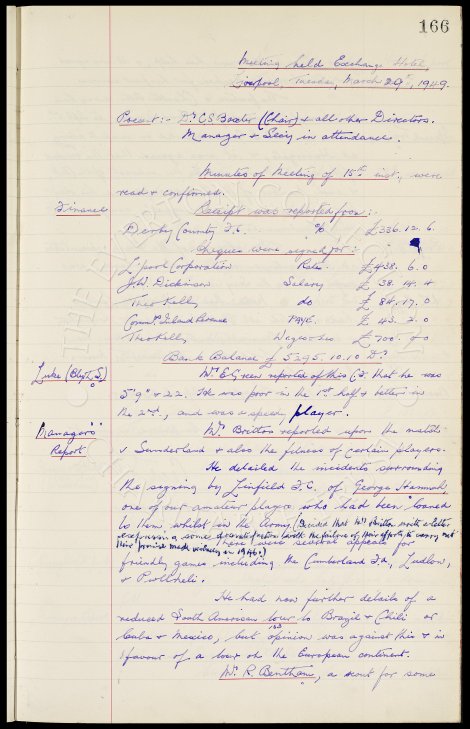 166
Meeting held Exchange Hotel,
Liverpool, Tuesday, March 29th, 1949.
Present:- Dr. C.S. Baxter (Chair) & all other Directors.
Manager & Secy in attendance.
Minutes of Meeting of 15th inst., were
read & confirmed.
Finance
Receipt was reported from:
Derby County F.C. % £336. 12. 6.
Cheques were signed for:
L'pool Corporation Rates £438. 6. 0
J.W. Dickinson Salary £ 38. 14. 4
Theo Kelly do £ 84. 17. 0
Commr. Inland Revenue PAYE. £ 43. 2. 0
Theo Kelly Wages &c £ 700. 0. 0
Bank Balance of 5295. 10. 10 Dr.
Luke (Blyth S)
Mr. E. Green reported of this that he was
5' 9" & 22. He was poor in the 1st half & better in
the 2nd, and was a speedy player.
Manager's
Report
Mr. Britton reported upon the match
v Sunderland & also the fitness of certain players.
He detailed the incidents surrounding
the signing by Linfield F.C. of George Hannah,
one of our amateur players who had been "loaned
to them, whilst in the Army (Decided that Mr Britton write a letter
expressing some dissatisfaction with the failure of their efforts to carry out
their promise made in 1946.)
There were several appeals for
friendly games including the Cumberland FA, Ludlow,
& Pwllheli.
He had now further details of a
reduced South American tour to Brazil & Chili or
Cuba & Mexico, but opinion was against this & in
favour of a tour on the European continent.
Mr. R. Bentham, a scout for some